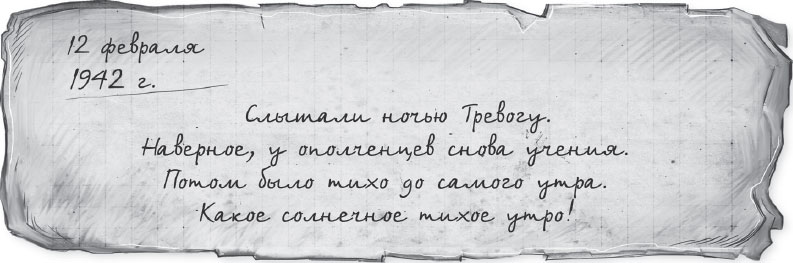 12 февраля
1942 г.
Слышали ночью Тревогу.
Наверное, у ополченцев снова учения.
Потом было тихо до самого утра.
Какое солнечное тихое утро!